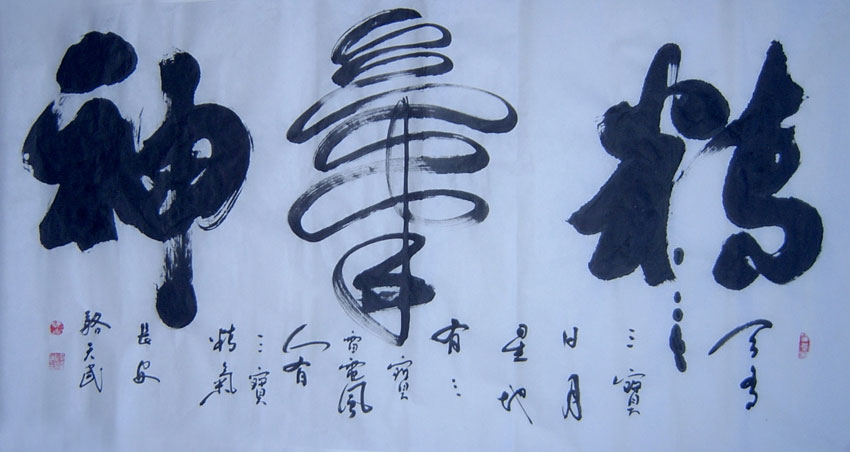 精氣神
天有
三寶
日月
星地
有三
寶
雷電風
人有
三寶
精氣
長安
駱天